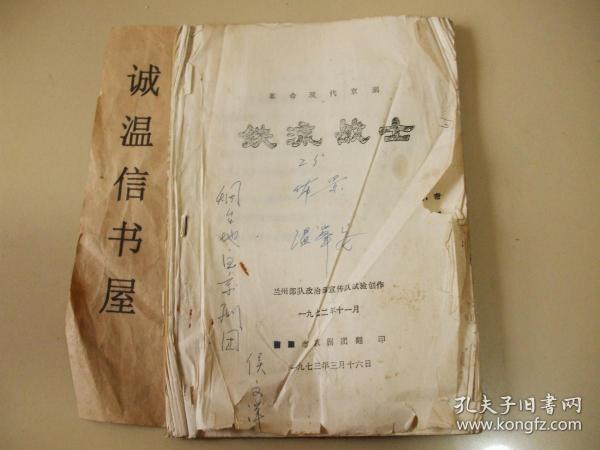 诚温信书屋
革命现代京剧
铁流战士
兰州部队政治部宣传队试验创作
一九七二年十一月
京剧团翻印
一九七三年三月十六日
烟台地区京剧团
侯文泽
孔夫子旧书网
www.kongfz.com